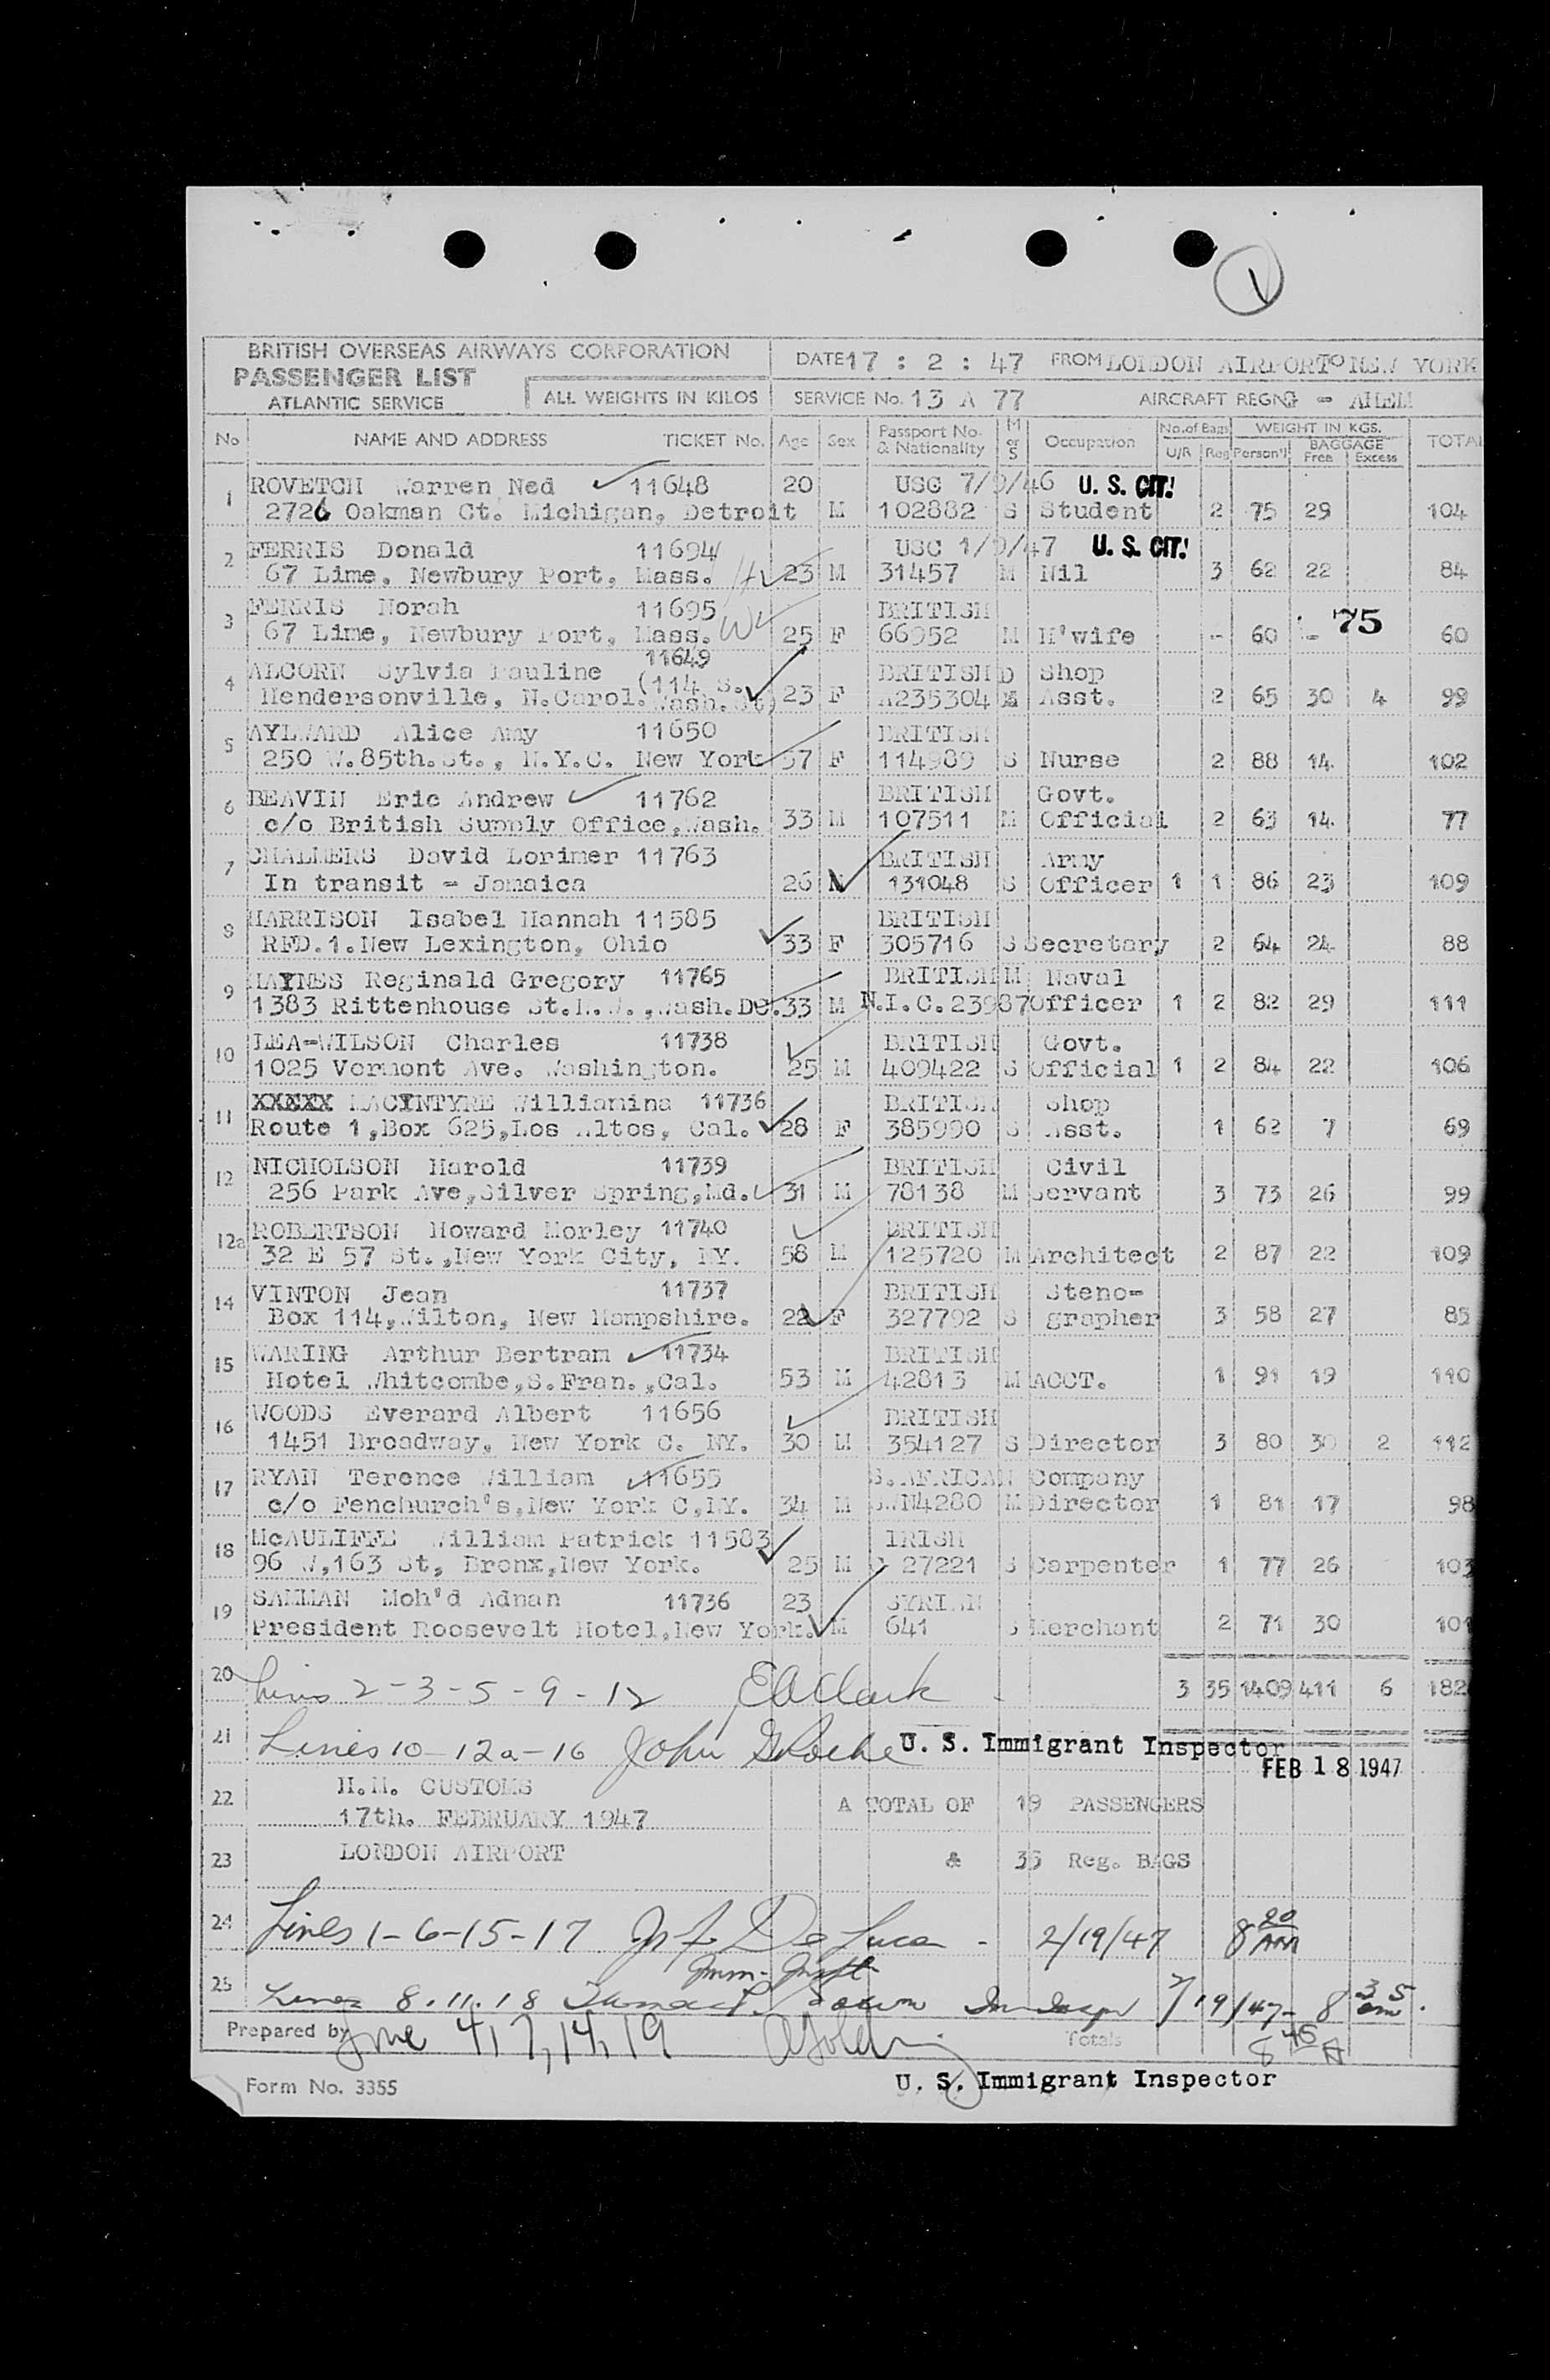 1
BRITISH OVERSEAS AIRWAYS CORPORATION
PASSENGER LIST
ATLANTIC SERVICE
ALL WEIGHTS IN KILOS
DATE 17 : 2 : 47 FROM LONDON AIRPORT TO NEW YORK
SERVICE No. 13 A 77 AIRCRAFT REGN G - AHEM
No NAME AND ADDRESS TICKET No. Age Sex Passport No. & Nationality M or S Occupation No. of Bags U/R Reg WEIGHT IN KGS. Person'l BAGGAGE Free Excess TOTAL
1 ROVETCH Warren Ned 11648 20 USC 7/9/46 U. S. CIT.
2726 Oakman Ct. Michigan, Detroit M 102882 S Student 2 75 29 104
2 FERRIS Donald 11694 USC 1/9/47 U. S. CIT.
67 Lime. Newbury Port, Mass. H 23 M 31457 M Nil 3 62 22 84
3 FERRIS Norah 11695 BRITISH
67 Lime, Newbury Port, Mass. W 25 F 66952 M H'wife - 60 - 75 60
4 ALCORN Sylvia Pauline 11649 BRITISH D Shop
Hendersonville, N.Carol. (114 S. Wash.St) 23 F A235304 M Asst. 2 65 30 4 99
5 AYLWARD Alice Amy 11650 BRITISH
250 W.85th.St., N.Y.C. New York 57 F 114989 S Nurse 2 88 14 102
6 BEAVIN Eric Andrew 11762 BRITISH Govt.
c/o British Supply Office,Wash. 33 M 107511 M Official 2 63 14 77
7 CHALMERS David Lorimer 11763 BRITISH Army
In transit - Jamaica 26 M 131048 S Officer 1 1 86 23 109
8 HARRISON Isabel Hannah 11585 BRITISH
RFD.1.New Lexington, Ohio 33 F 305716 S Secretary 2 64 24 88
9 HAYNES Reginald Gregory 11765 BRITISH M Naval
1383 Rittenhouse St.N.W.,Wash.DC. 33 M N.I.C.23987 Officer 1 2 82 29 111
10 LEA-WILSON Charles 11738 BRITISH Govt.
1025 Vermont Ave. Washington. 25 M 409422 S Official 1 2 84 22 106
11 XXXXX MACINTYRE Williamina 11736 BRITISH Shop
Route 1,Box 625,Los Altos, Cal. 28 F 385990 S Asst. 1 62 7 69
12 NICHOLSON Harold 11739 BRITISH Civil
256 Park Ave,Silver Spring,Md. 31 M 78138 M Servant 3 73 26 99
12a ROBERTSON Howard Morley 11740 BRITISH
32 E 57 St.,New York City, NY. 58 M 125720 M Architect 2 87 22 109
14 VINTON Jean 11737 BRITISH Steno-
Box 114,Wilton, New Hampshire. 22 F 327792 S grapher 3 58 27 85
15 WARING Arthur Bertram 11734 BRITISH
Hotel Whitcombe,S.Fran.,Cal. 53 M 42813 M ACCT. 1 91 19 110
16 WOODS Everard Albert 11656 BRITISH
1451 Broadway, New York C. NY. 30 M 354127 S Director 3 80 30 2 112
17 RYAN Terence William 11655 S.AFRICAN Company
c/o Fenchurch's,New York C,NY. 34 M N4280 M Director 1 81 17 98
18 McAULIFFE William Patrick 11583 IRISH
96 W,163 St, Bronx,New York. 25 M 27221 S Carpenter 1 77 26 103
19 SAMMAN Moh'd Adnan 11736 23 SYRIAN
President Roosevelt Hotel,New York. M 641 S Merchant 2 71 30 101
20 Lines 2-3-5-9-12 EAClark 3 35 1409 411 6 182
21 Lines 10-12a-16 John G Roche U. S. Immigrant Inspector
FEB 18 1947
22 H.M. CUSTOMS
17th. FEBRUARY 1947 A TOTAL OF 19 PASSENGERS
23 LONDON AIRPORT & 35 Reg. BAGS
24 Lines 1-6-15-17 De Luca - 2/19/47 8 20 AM
Imm. Inspt
25 Lines 8.11.18 2/19/47 - 8 35 am.
Prepared by Line 4,7,14,19 Totals 8 45 A
Form No. 3355 U. S. Immigrant Inspector